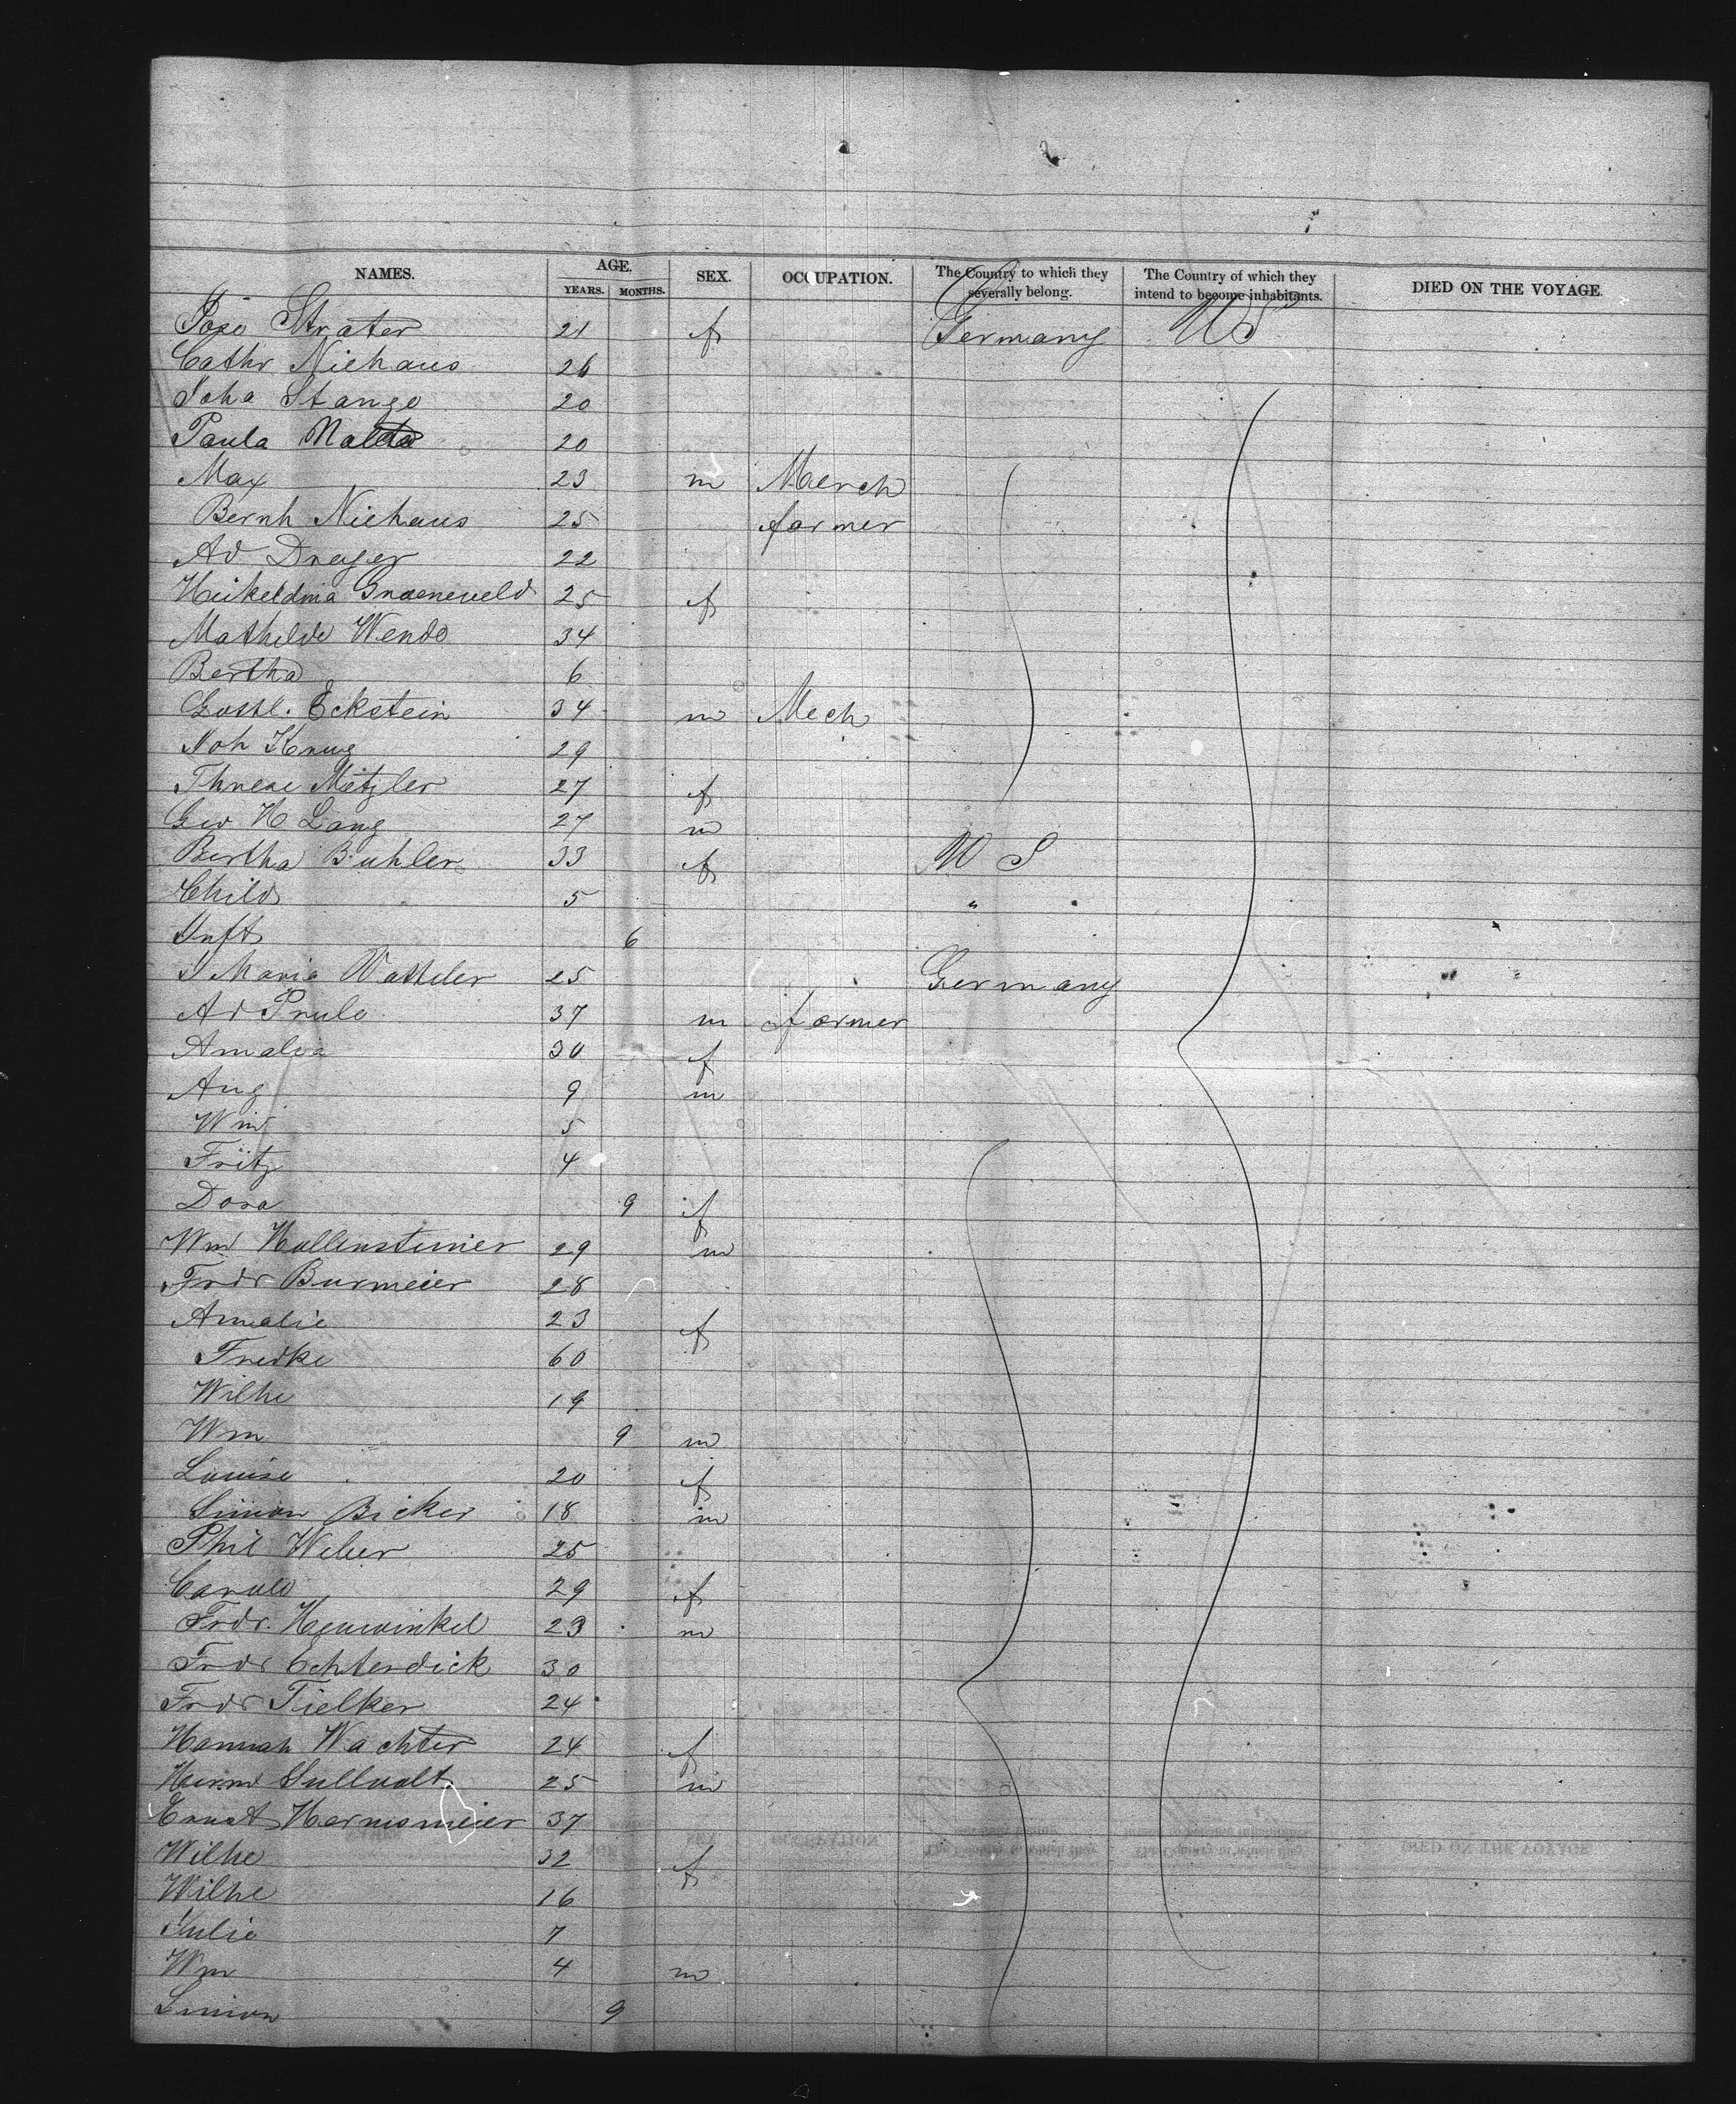 NAMES. AGE. SEX. OCCUPATION. The Country to which they severally belong. The Country of which they intend to become inhabitants. DIED ON THE VOYAGE.
YEARS. MONTHS.
Strater 21 f Germany US
Cathr Niehaus 26
Joha Stange 20
Paula 20
Max 23 m Merch
Bernh Niehaus 25 farmer
Ad Dreyer 22
Groeneveld 25 f
Mathilde Wende 34
Bertha 6
Gottl. Eckstein 34 m Mech
Joh Krug 29
Metzler 27 f
Geo H Lang 27 m
Bertha Buhler 33 f U S
Child 5 "
Inft 6
Maria 25 Germany
Ad 37 m farmer
Amalia 30 f
Aug 9 m
Wm 5
Fritz 4
Dora 9 f
Wm 29 m
Fredr Burmeier 28
Amalie 23 f
Fredke 60
Wilhe 19
Wm 9 m
Louise 20 f
Simon Bicker 18 m
Phil Weber 25
29 f
Fredr. 23 m
Fredr Echterdick 30
Fredr Tielker 24
Hannah Wachter 24 f
Herm 25 m
Ernst Hermsmeier 37
Wilhe 32 f
Wilhe 16
Julie 7
Wm 4 m
Simon 9